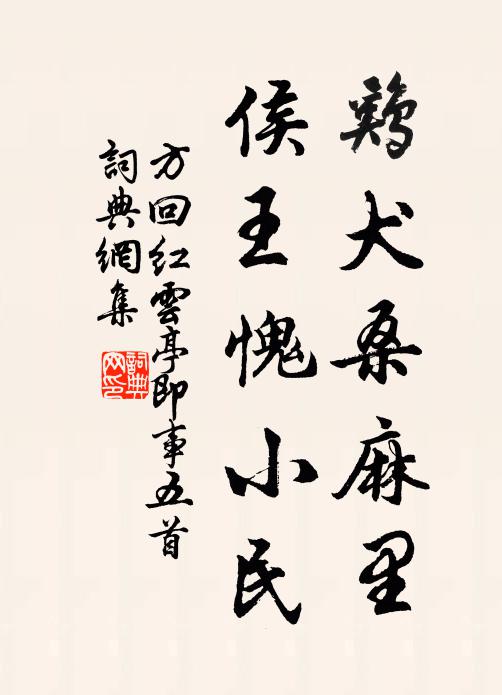 鷄犬桑麻里
侯王愧小民
方回紅雲亭即事五首
詞典網集
詞典網印